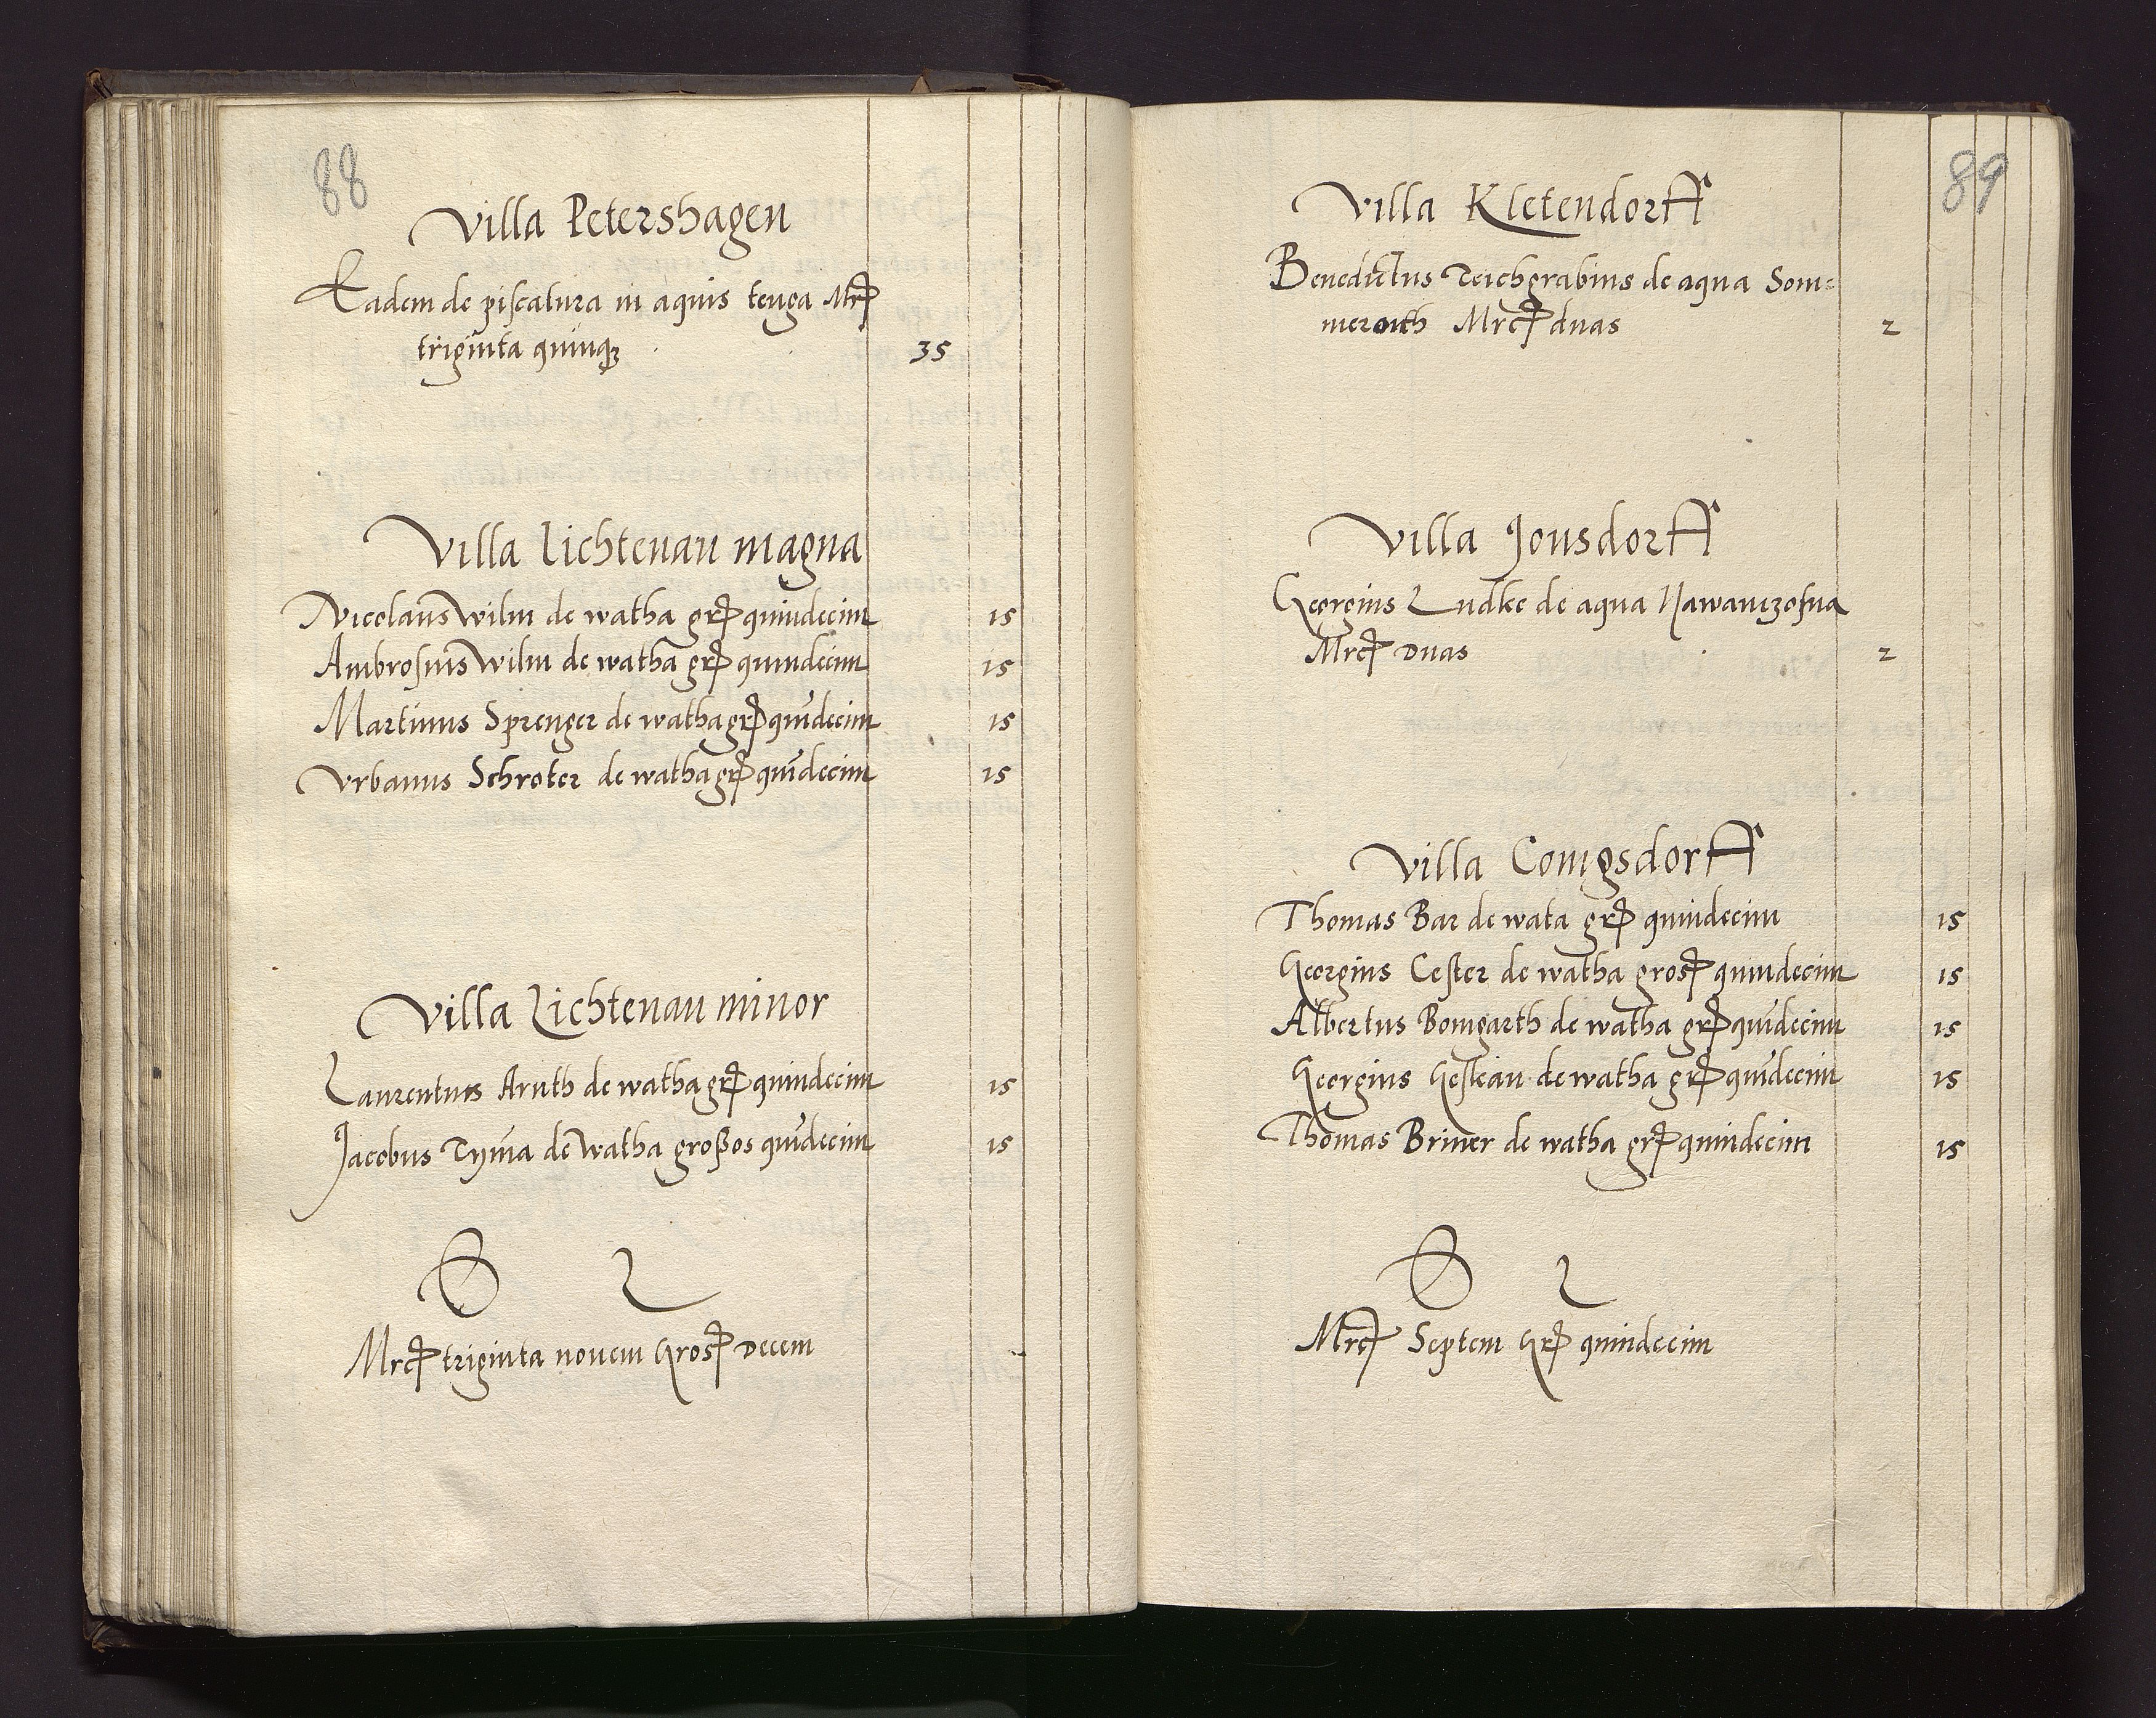 88
Villa Petershagen
Eadem de piscatura in aquis tenga Mrc
triginta quinq3 35
Villa Lichtenau magna
Nicolaus Wilm de watha gr quindecim 15
Ambrosius Wilm de watha gr quindecim 15
Martinus Sprenger de watha gr quīdecim 15
Vrbanus Schroter de watha gr quīdecim 15
Villa Lichtenau minor
Laurentius Aruth de watha gr quindecim 15
Jacobus Tyma de watha großos quīdecim 15
Mrc triginta nouem Gros decem
89
Villa Kletendorff
Benedictus Teichgrabius de aqua Som=
meroth Mrc duas 2
Villa Jonsdorff
Georgius Ludke de aqua Nawanczosna
Mrc duas 2
Villa Conigsdorff
Thomas Bar de wata gr quindecim 15
Georgius Cester de watha gros quindecim 15
Albertus Bomgarth de watha gr quīdecim 15
Georgius Gesteau de watha gr quīdecim 15
Thomas Briner de watha gr quindecim 15
Mrc Septem Gr quindecim